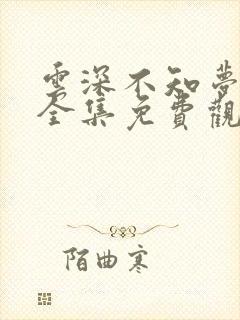 雲深不知夢
全集免費觀
陌曲寒